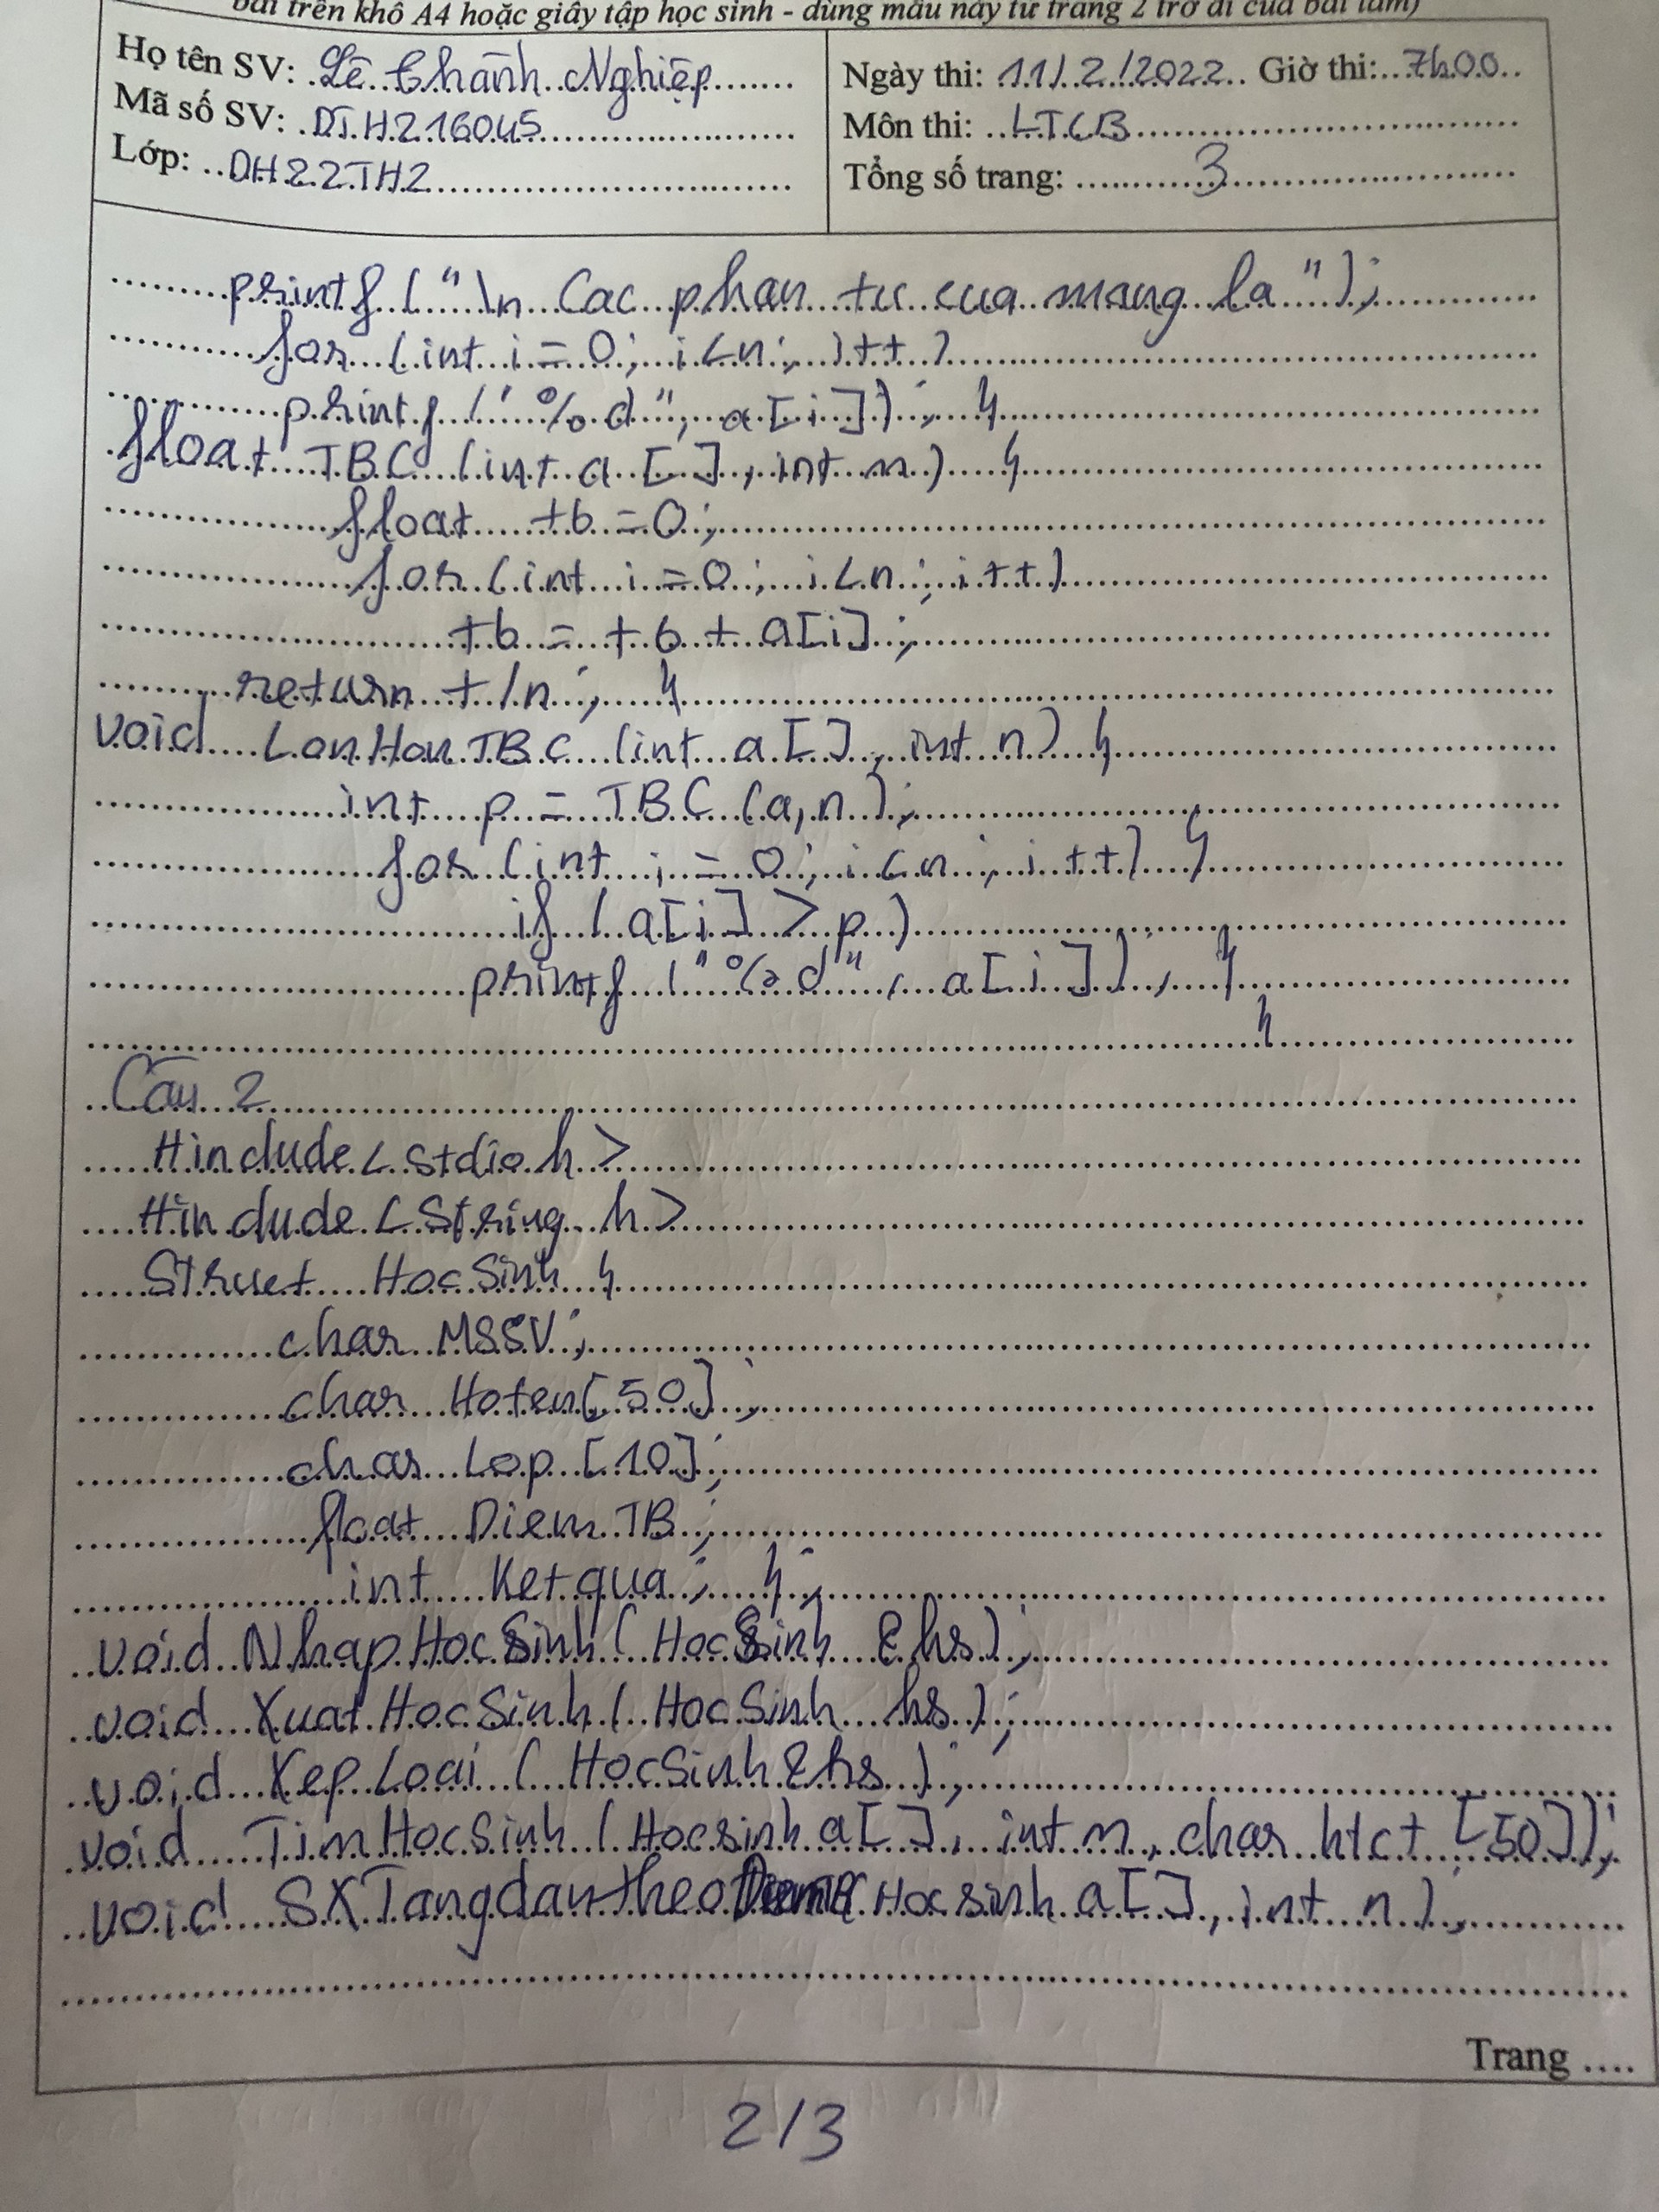 bài trên khổ A4 hoặc giấy tập học sinh - dùng mẫu này từ trang 2 trở đi của bài làm)
Họ tên SV: Lê Chành Nghiệp
Mã số SV: DTH216045
Lớp: DH22TH2
Ngày thi: 11/2/2022 Giờ thi: 7h00
Môn thi: LTCB
Tổng số trang: 3
printf ("\n Cac phan tu cua mang la");
for (int i = 0; i < n; i++)
printf (" %d", a[i]); }
float TBC (int a[], int n) {
float tb = 0;
for (int i = 0; i < n; i++)
tb = tb + a[i];
return t/n; }
void LonHonTBC (int a[], int n) {
int p = TBC (a,n);
for (int i = 0; i < n; i++) {
if (a[i] > p)
printf ("%d", a[i]); }
}
Câu 2
#include < stdio.h >
#include < String.h >
Struct HocSinh {
char MSSV;
char Hoten[50];
char Lop [10];
float DiemTB;
int Ketqua; };
void NhapHocSinh ( HocSinh &hs);
void XuatHocSinh ( HocSinh hs );
void XepLoai ( HocSinh &hs );
void TimHocSinh ( Hocsinh a[], int n, char htct [50]);
void SXTangdantheo Hocsinh a[], int n);
Trang ....
2/3